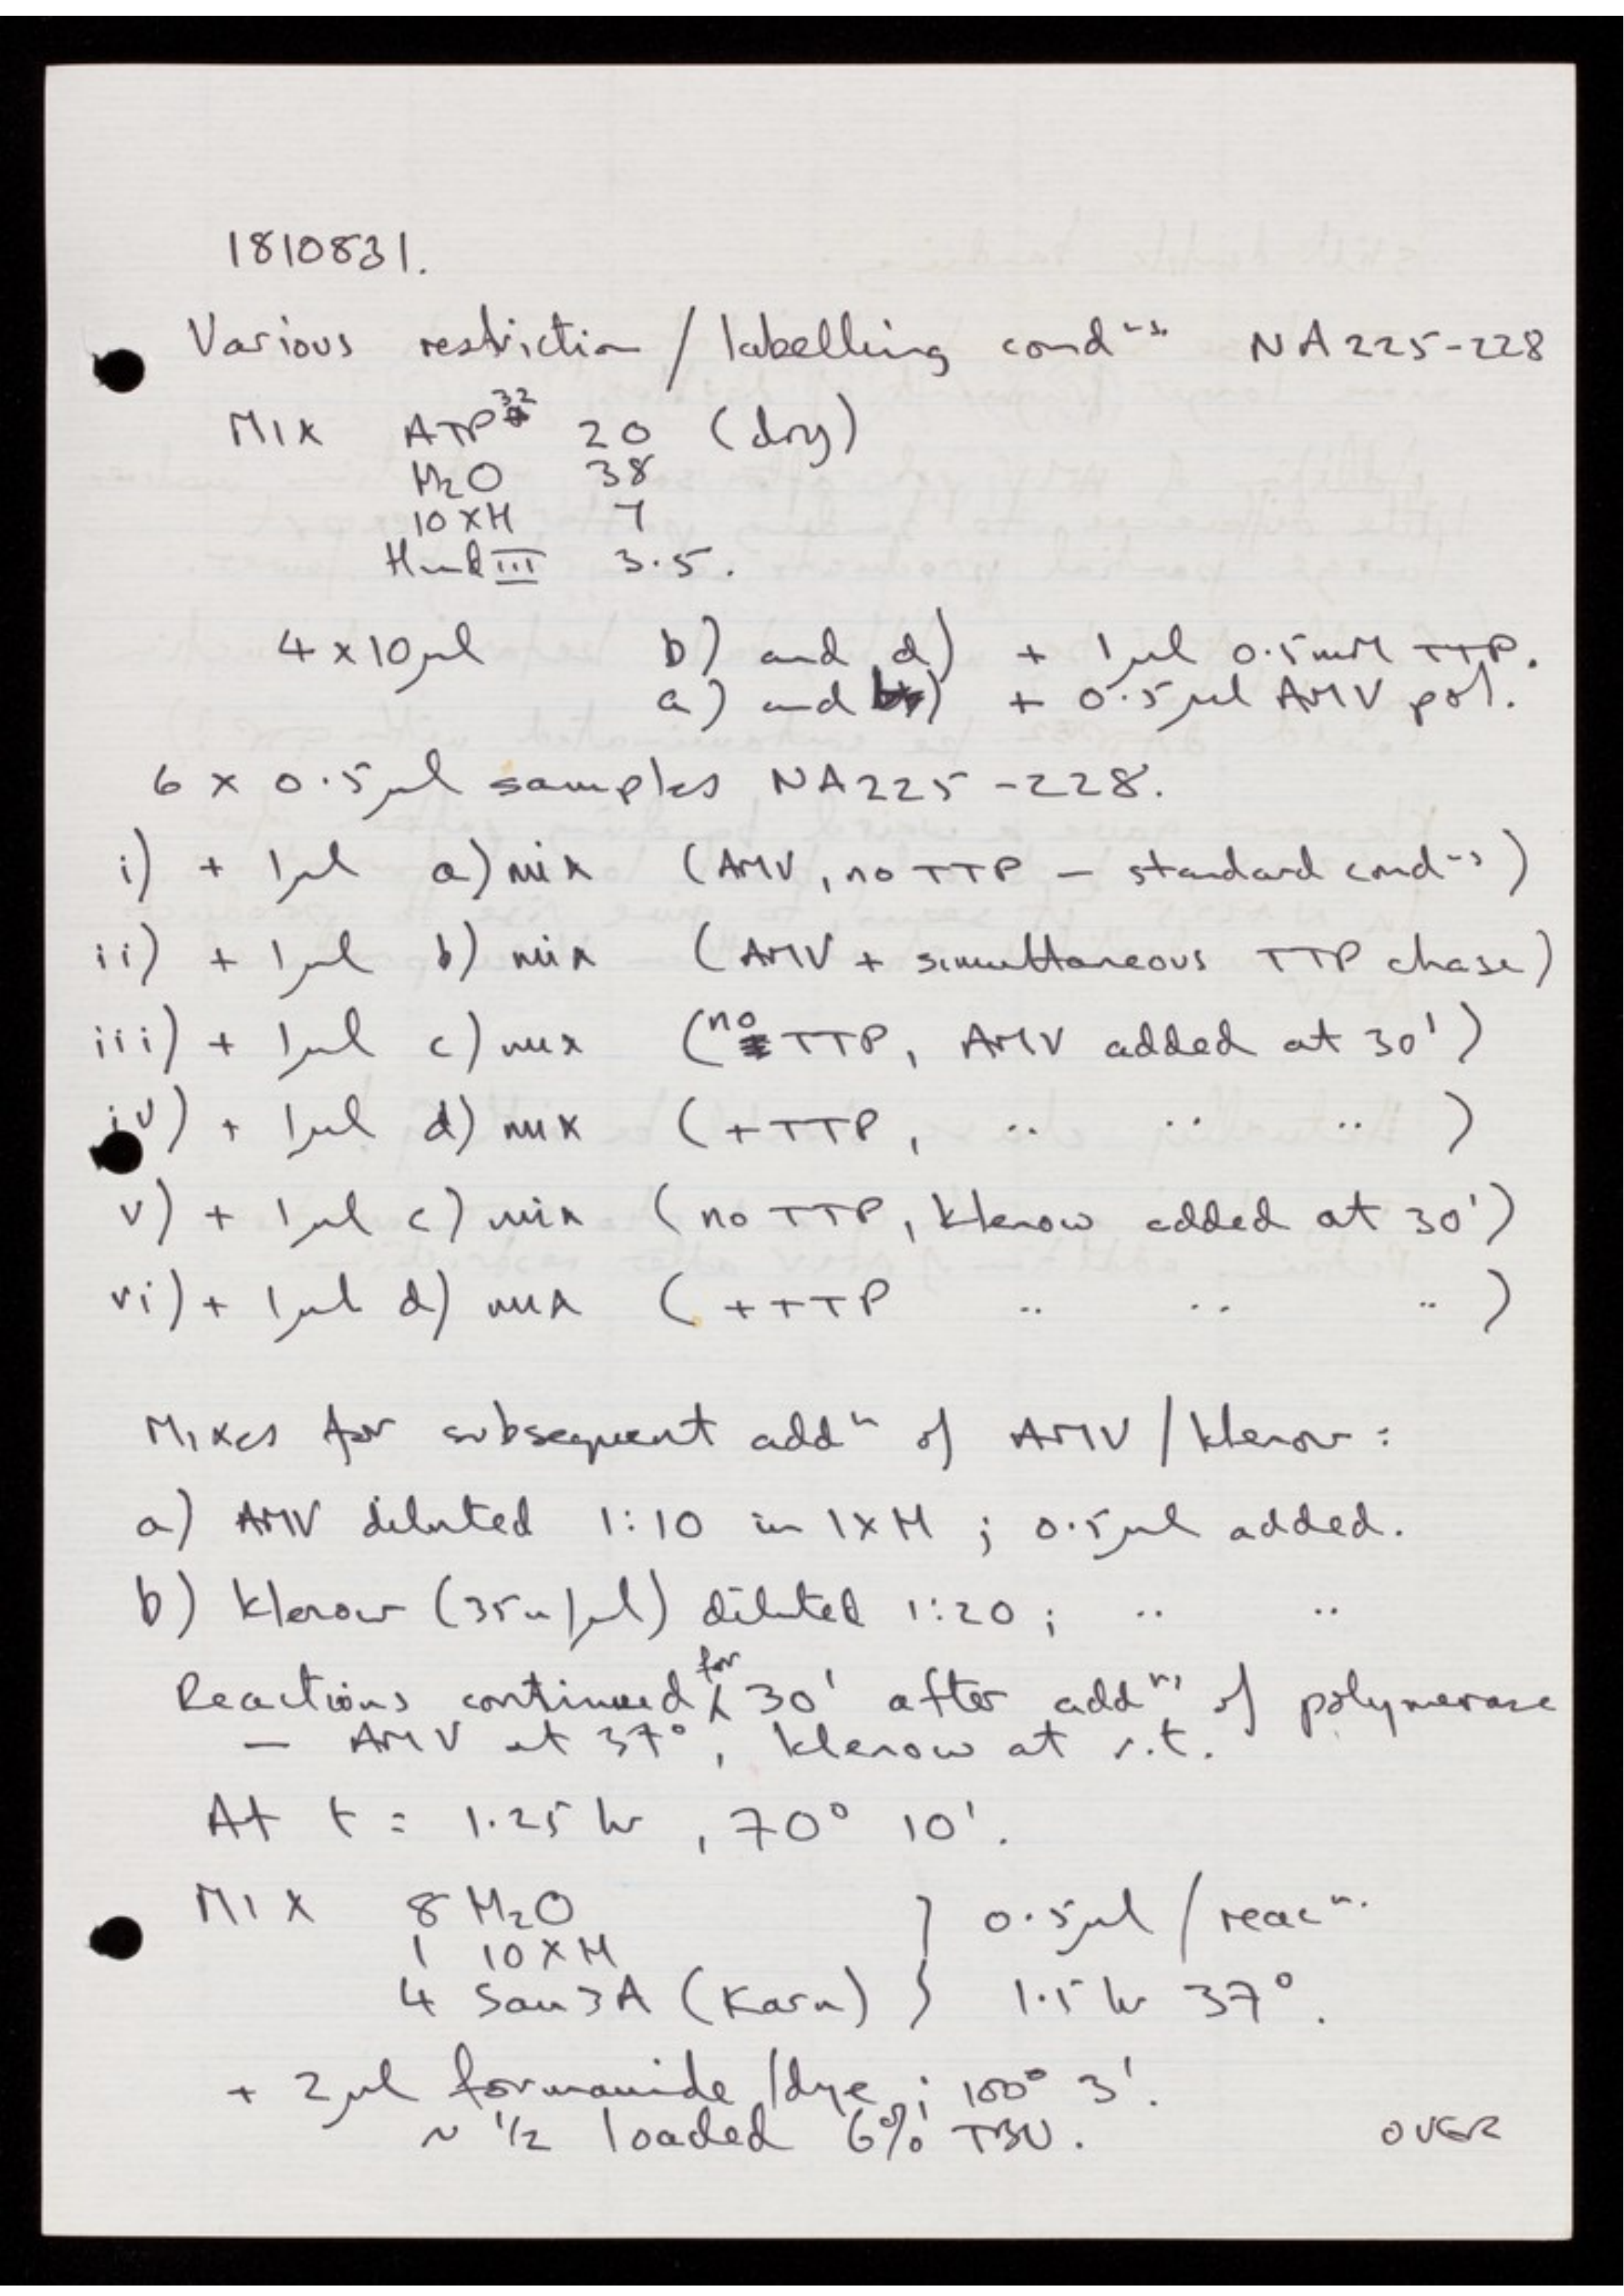 1810831.
Various restriction / labelling condⁿˢ. NA225-228
MIX ATP³² 20 (dry)
H₂O 38
10xH 7
Hind III 3.5.
4 x 10µl b) and d) + 1µl 0.5mM TTP.
a) and b) + 0.5µl AMV pol.
6 x 0.5µl samples NA225-228.
i) + 1µl a) mix (AMV, no TTP - standard condⁿˢ)
ii) + 1µl b) mix (AMV + simultaneous TTP chase)
iii) + 1µl c) mix (no TTP, AMV added at 30')
iv) + 1µl d) mix (+TTP, .. .. .. )
v) + 1µl c) mix (no TTP, klenow added at 30')
vi) + 1µl d) mix (+TTP .. .. .. )
Mixes for subsequent addⁿ of AMV / klenow :
a) AMV diluted 1:10 in 1xH ; 0.5µl added.
b) klenow (35u/µl) diluted 1:20 ; .. ..
Reactions continued for 30' after addⁿˢ of polymerase
- AMV at 37°, klenow at r.t.
At t = 1.25 hr, 70° 10'.
MIX 8 H₂O } 0.5µl / reacⁿ.
1 10xH
4 Sau3A (Karn) } 1.5 hr 37°.
+ 2µl formamide / dye ; 100° 3'.
~ 1/2 loaded 6% TBU. OVER